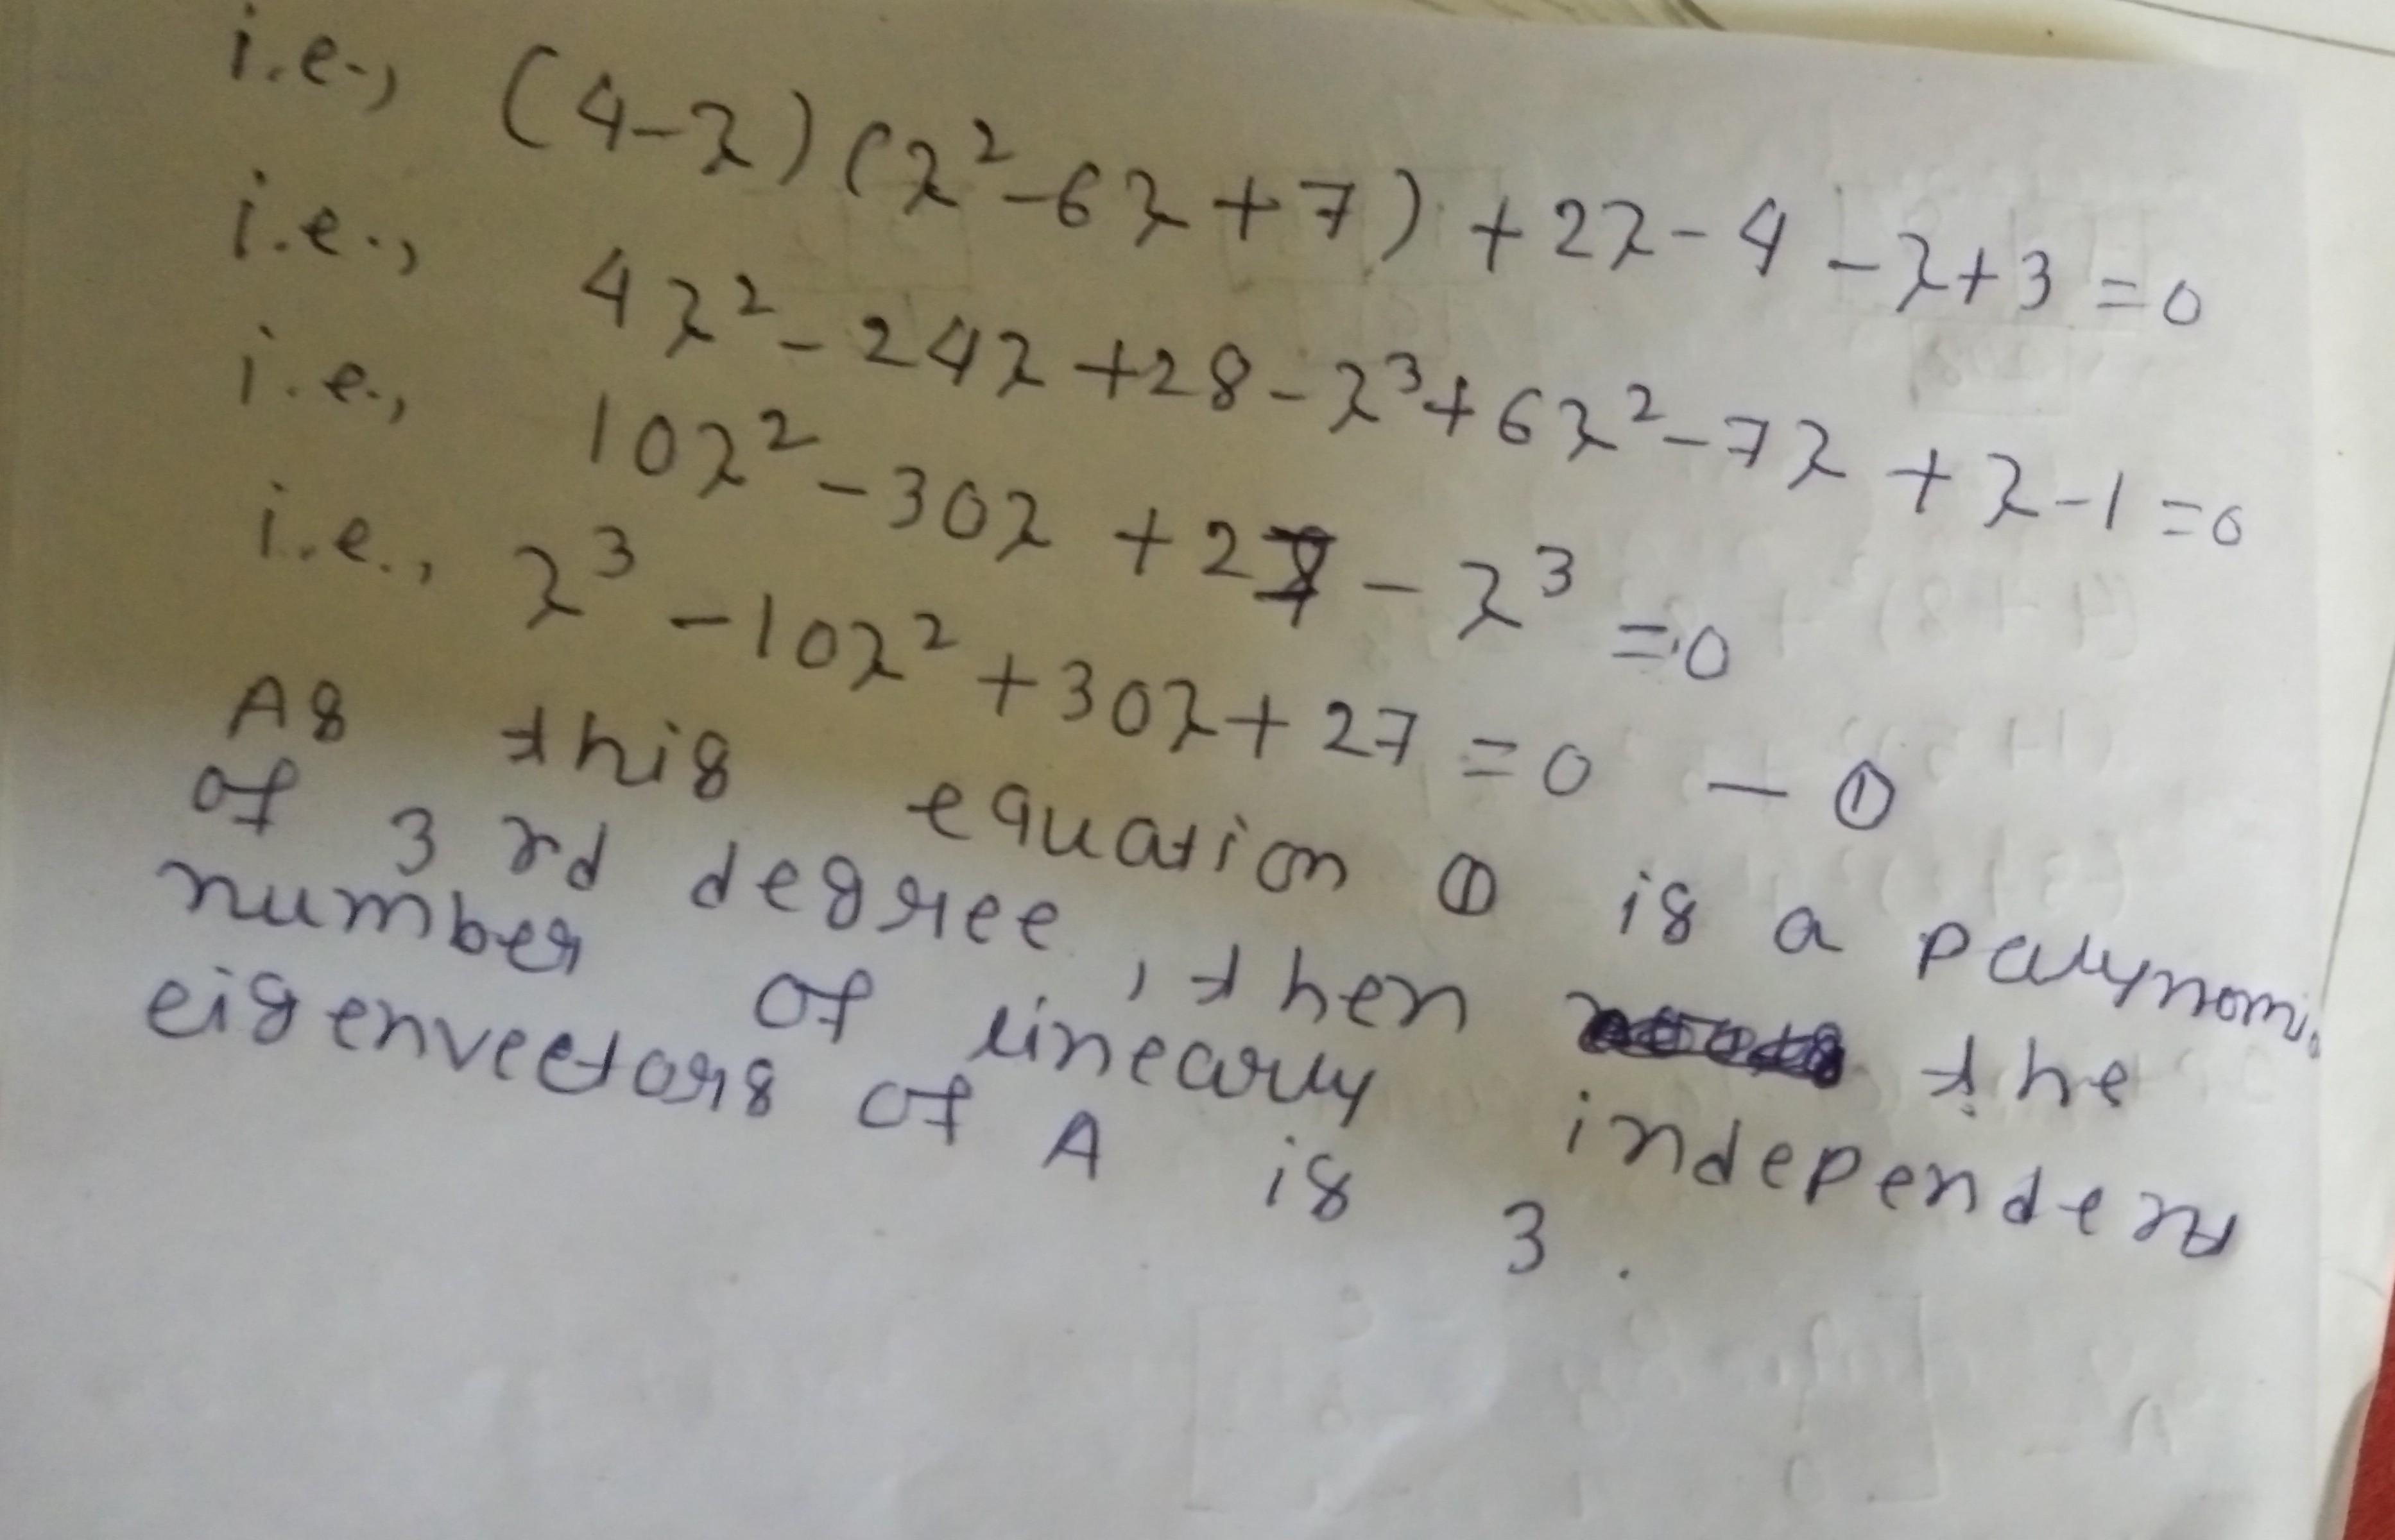 i.e., (4-λ)(λ²-6λ+7)+2λ-4-λ+3=0
i.e., 4λ²-24λ+28-λ³+6λ²-7λ+λ-1=0
i.e., 10λ²-30λ+27-λ³=0
i.e., λ³-10λ²+30λ+27=0 — ①
As this equation ① is a polynomi
of 3rd degree, then the
number of linearly independent
eigenvectors of A is 3.